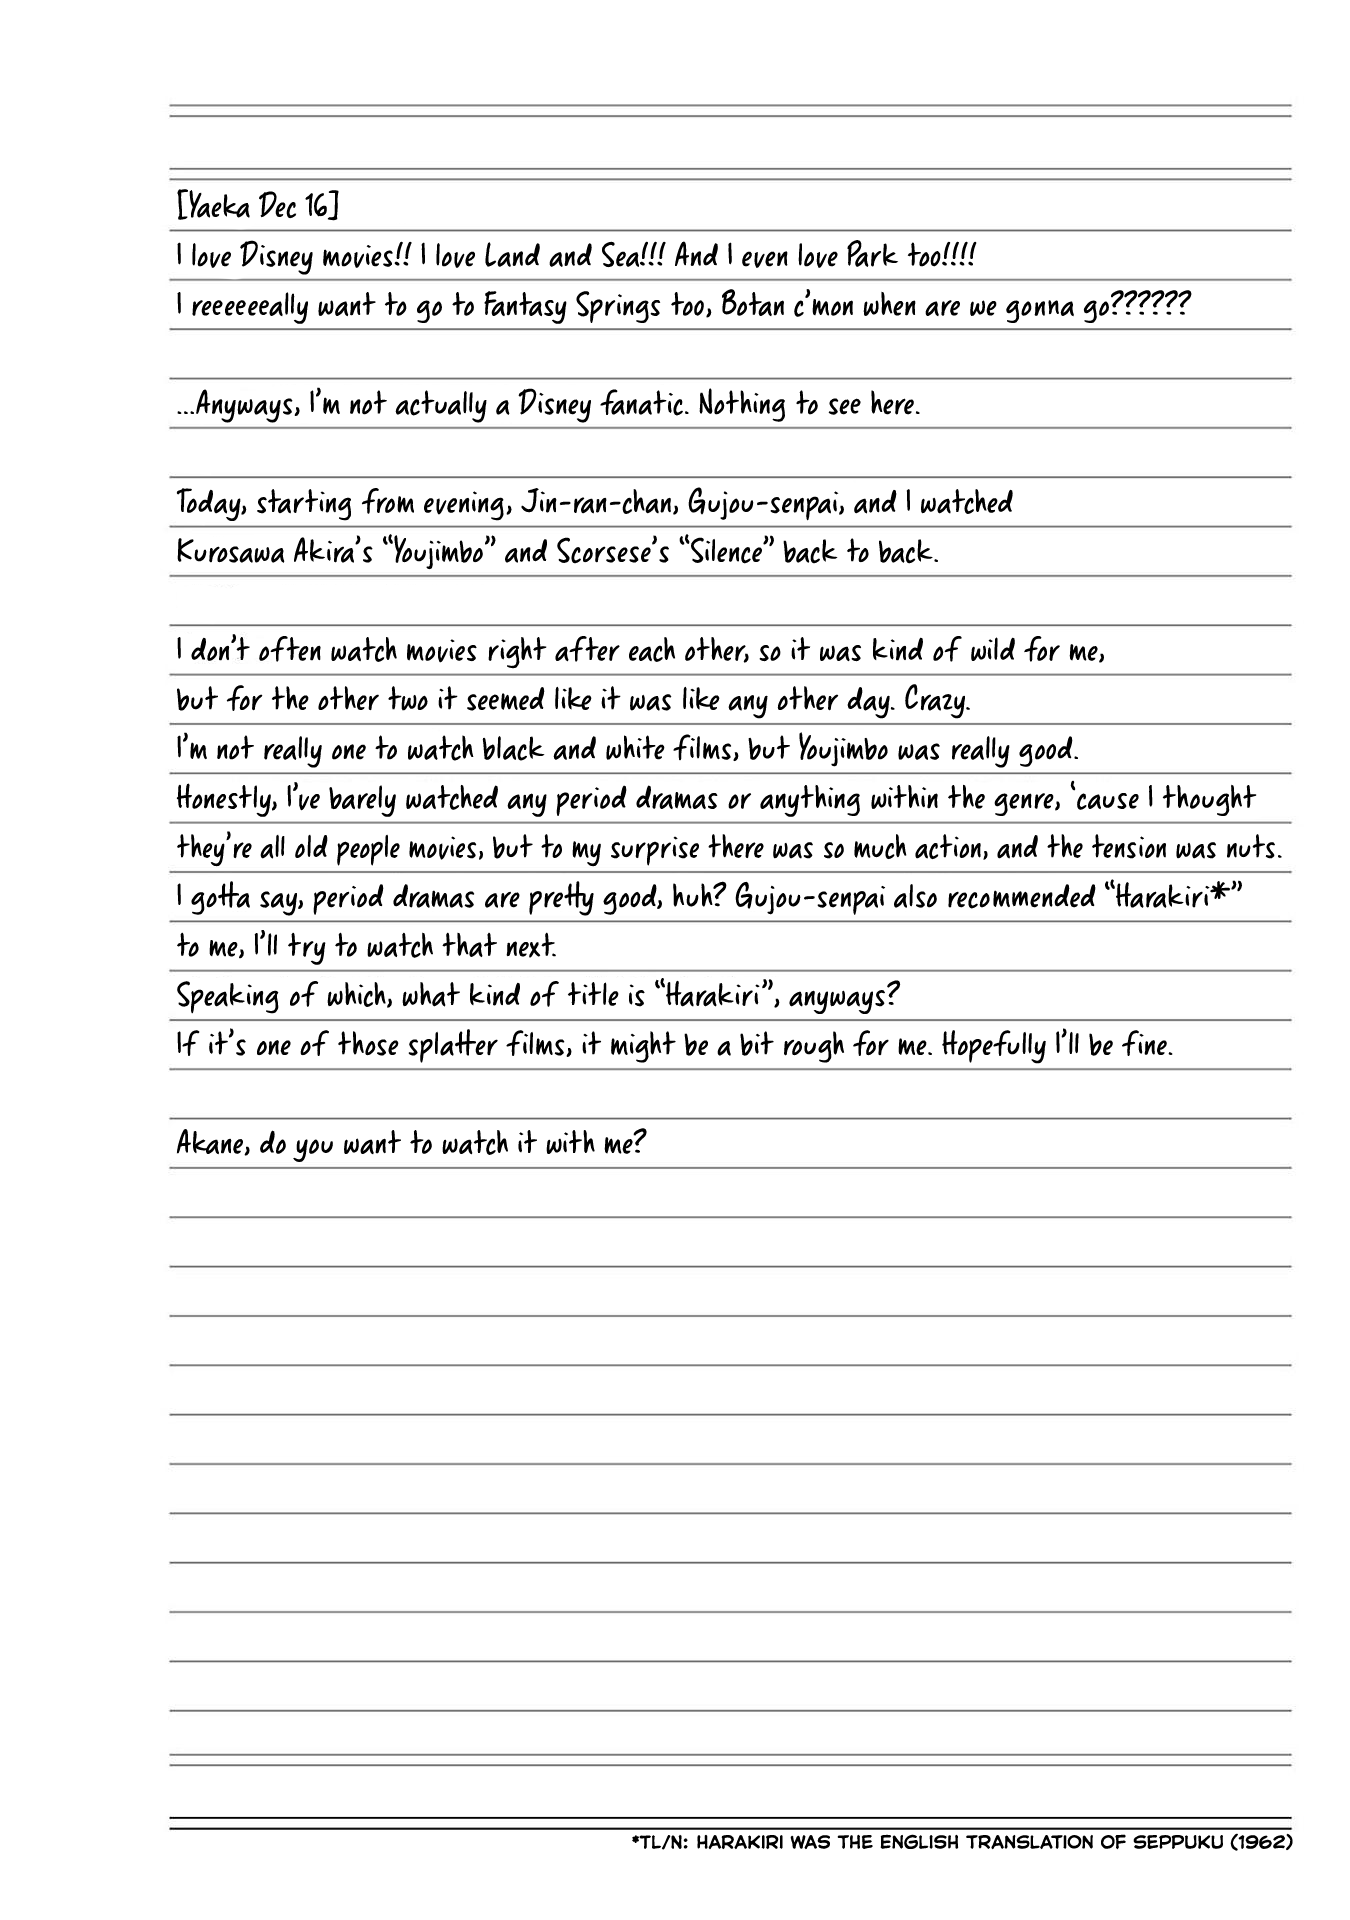 [Yaeka Dec 16]
I love Disney movies!! I love Land and Sea!!! And I even love Park too!!!!
I reeeeeeally want to go to Fantasy Springs too, Botan c'mon when are we gonna go??????
...Anyways, I'm not actually a Disney fanatic. Nothing to see here.
Today, starting from evening, Jin-ran-chan, Gujou-senpai, and I watched
Kurosawa Akira's “Youjimbo” and Scorsese's “Silence” back to back.
I don't often watch movies right after each other, so it was kind of wild for me,
but for the other two it seemed like it was like any other day. Crazy.
I'm not really one to watch black and white films, but Youjimbo was really good.
Honestly, I've barely watched any period dramas or anything within the genre, ‘cause I thought
they're all old people movies, but to my surprise there was so much action, and the tension was nuts.
I gotta say, period dramas are pretty good, huh? Gujou-senpai also recommended “Harakiri*”
to me, I'll try to watch that next.
Speaking of which, what kind of title is “Harakiri”, anyways?
If it's one of those splatter films, it might be a bit rough for me. Hopefully I'll be fine.
Akane, do you want to watch it with me?
*TL/N: HARAKIRI WAS THE ENGLISH TRANSLATION OF SEPPUKU (1962)